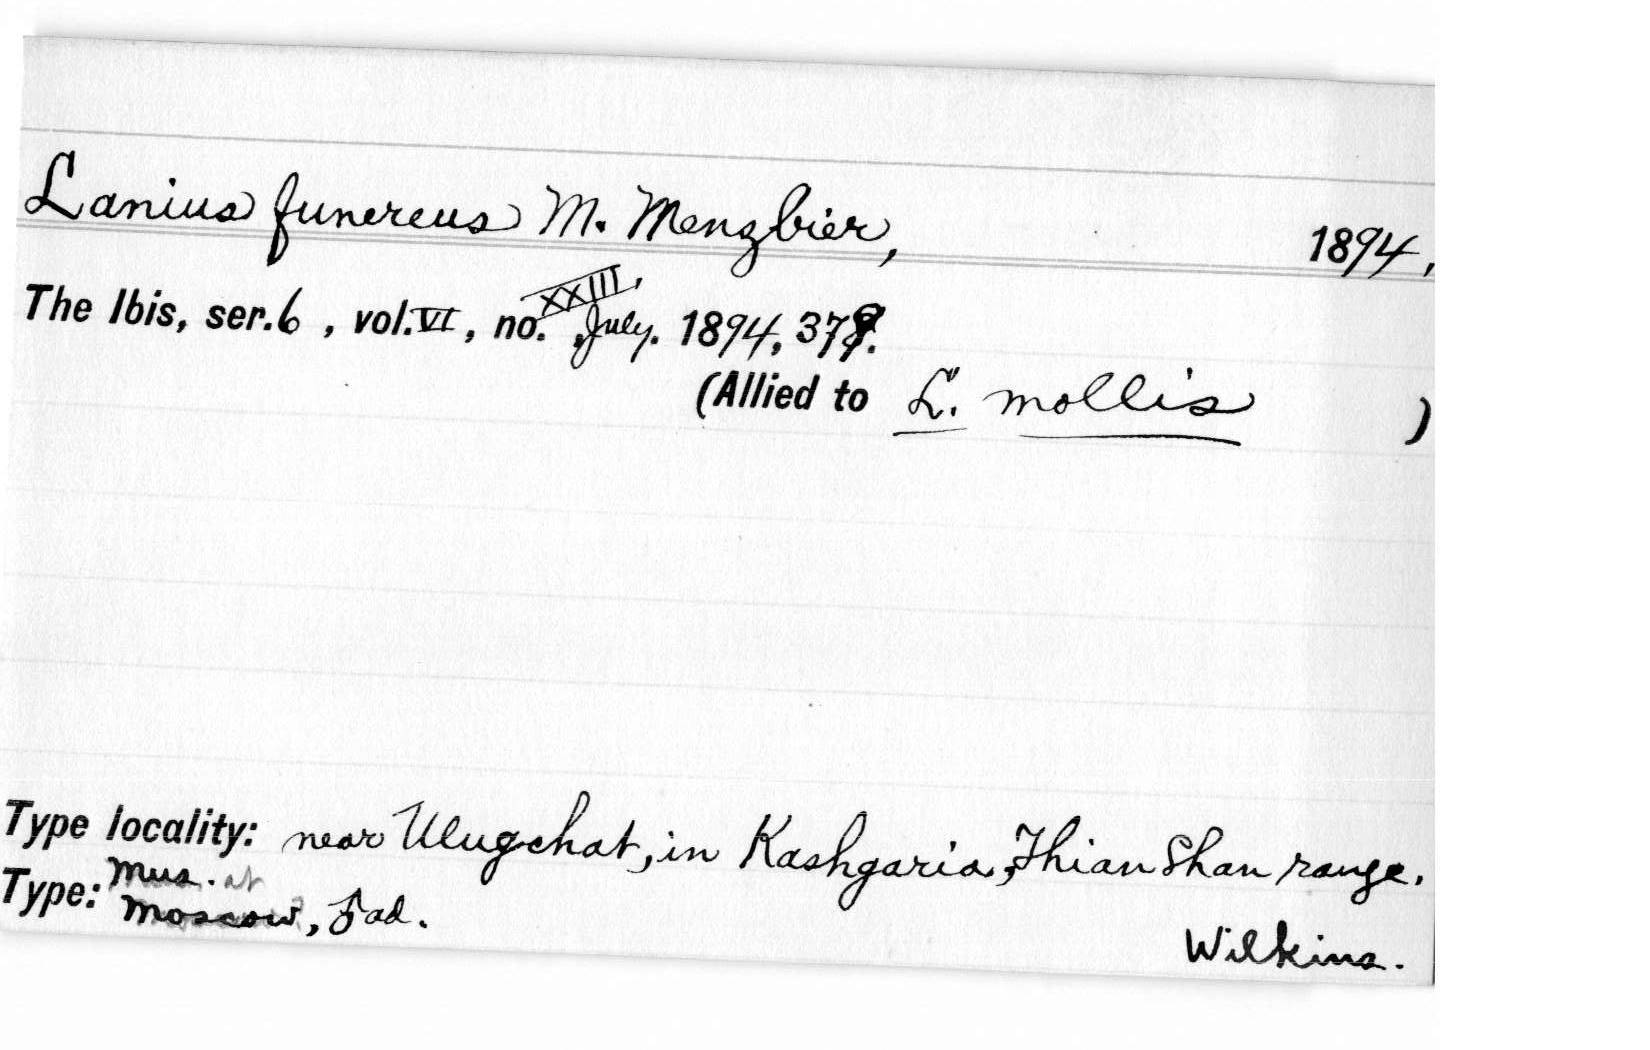 Lanius funereus M. Menzbier, 1894,
The Ibis, ser. 6, vol. VI, no. XXIII, July. 1894, 378.
(Allied to L. mollis )
Type locality: near Ulugchat, in Kashgaria, Thian Shan range.
Type: Mus. at
Moscow, ad.
Wilkins.